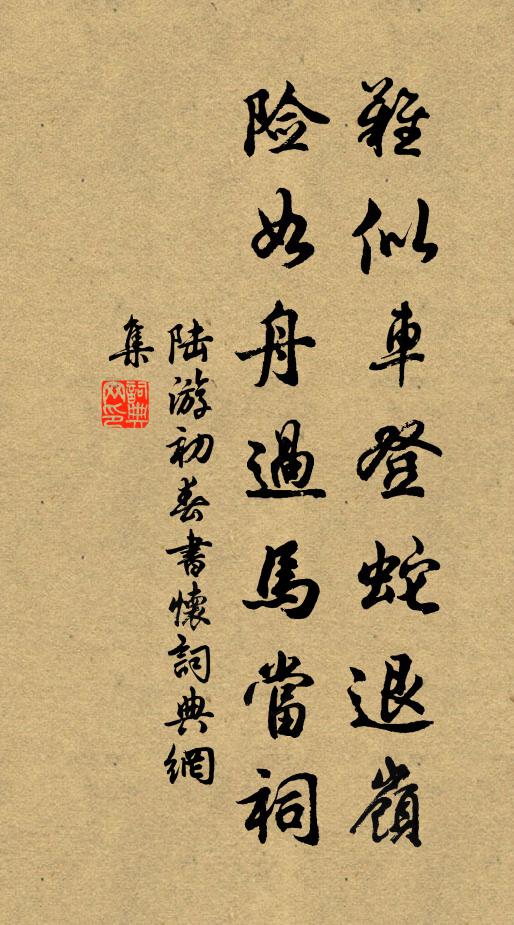 難似車登蛇退嶺
險如舟過馬當祠
陆游初春書懷詞典網
集
詞典網印